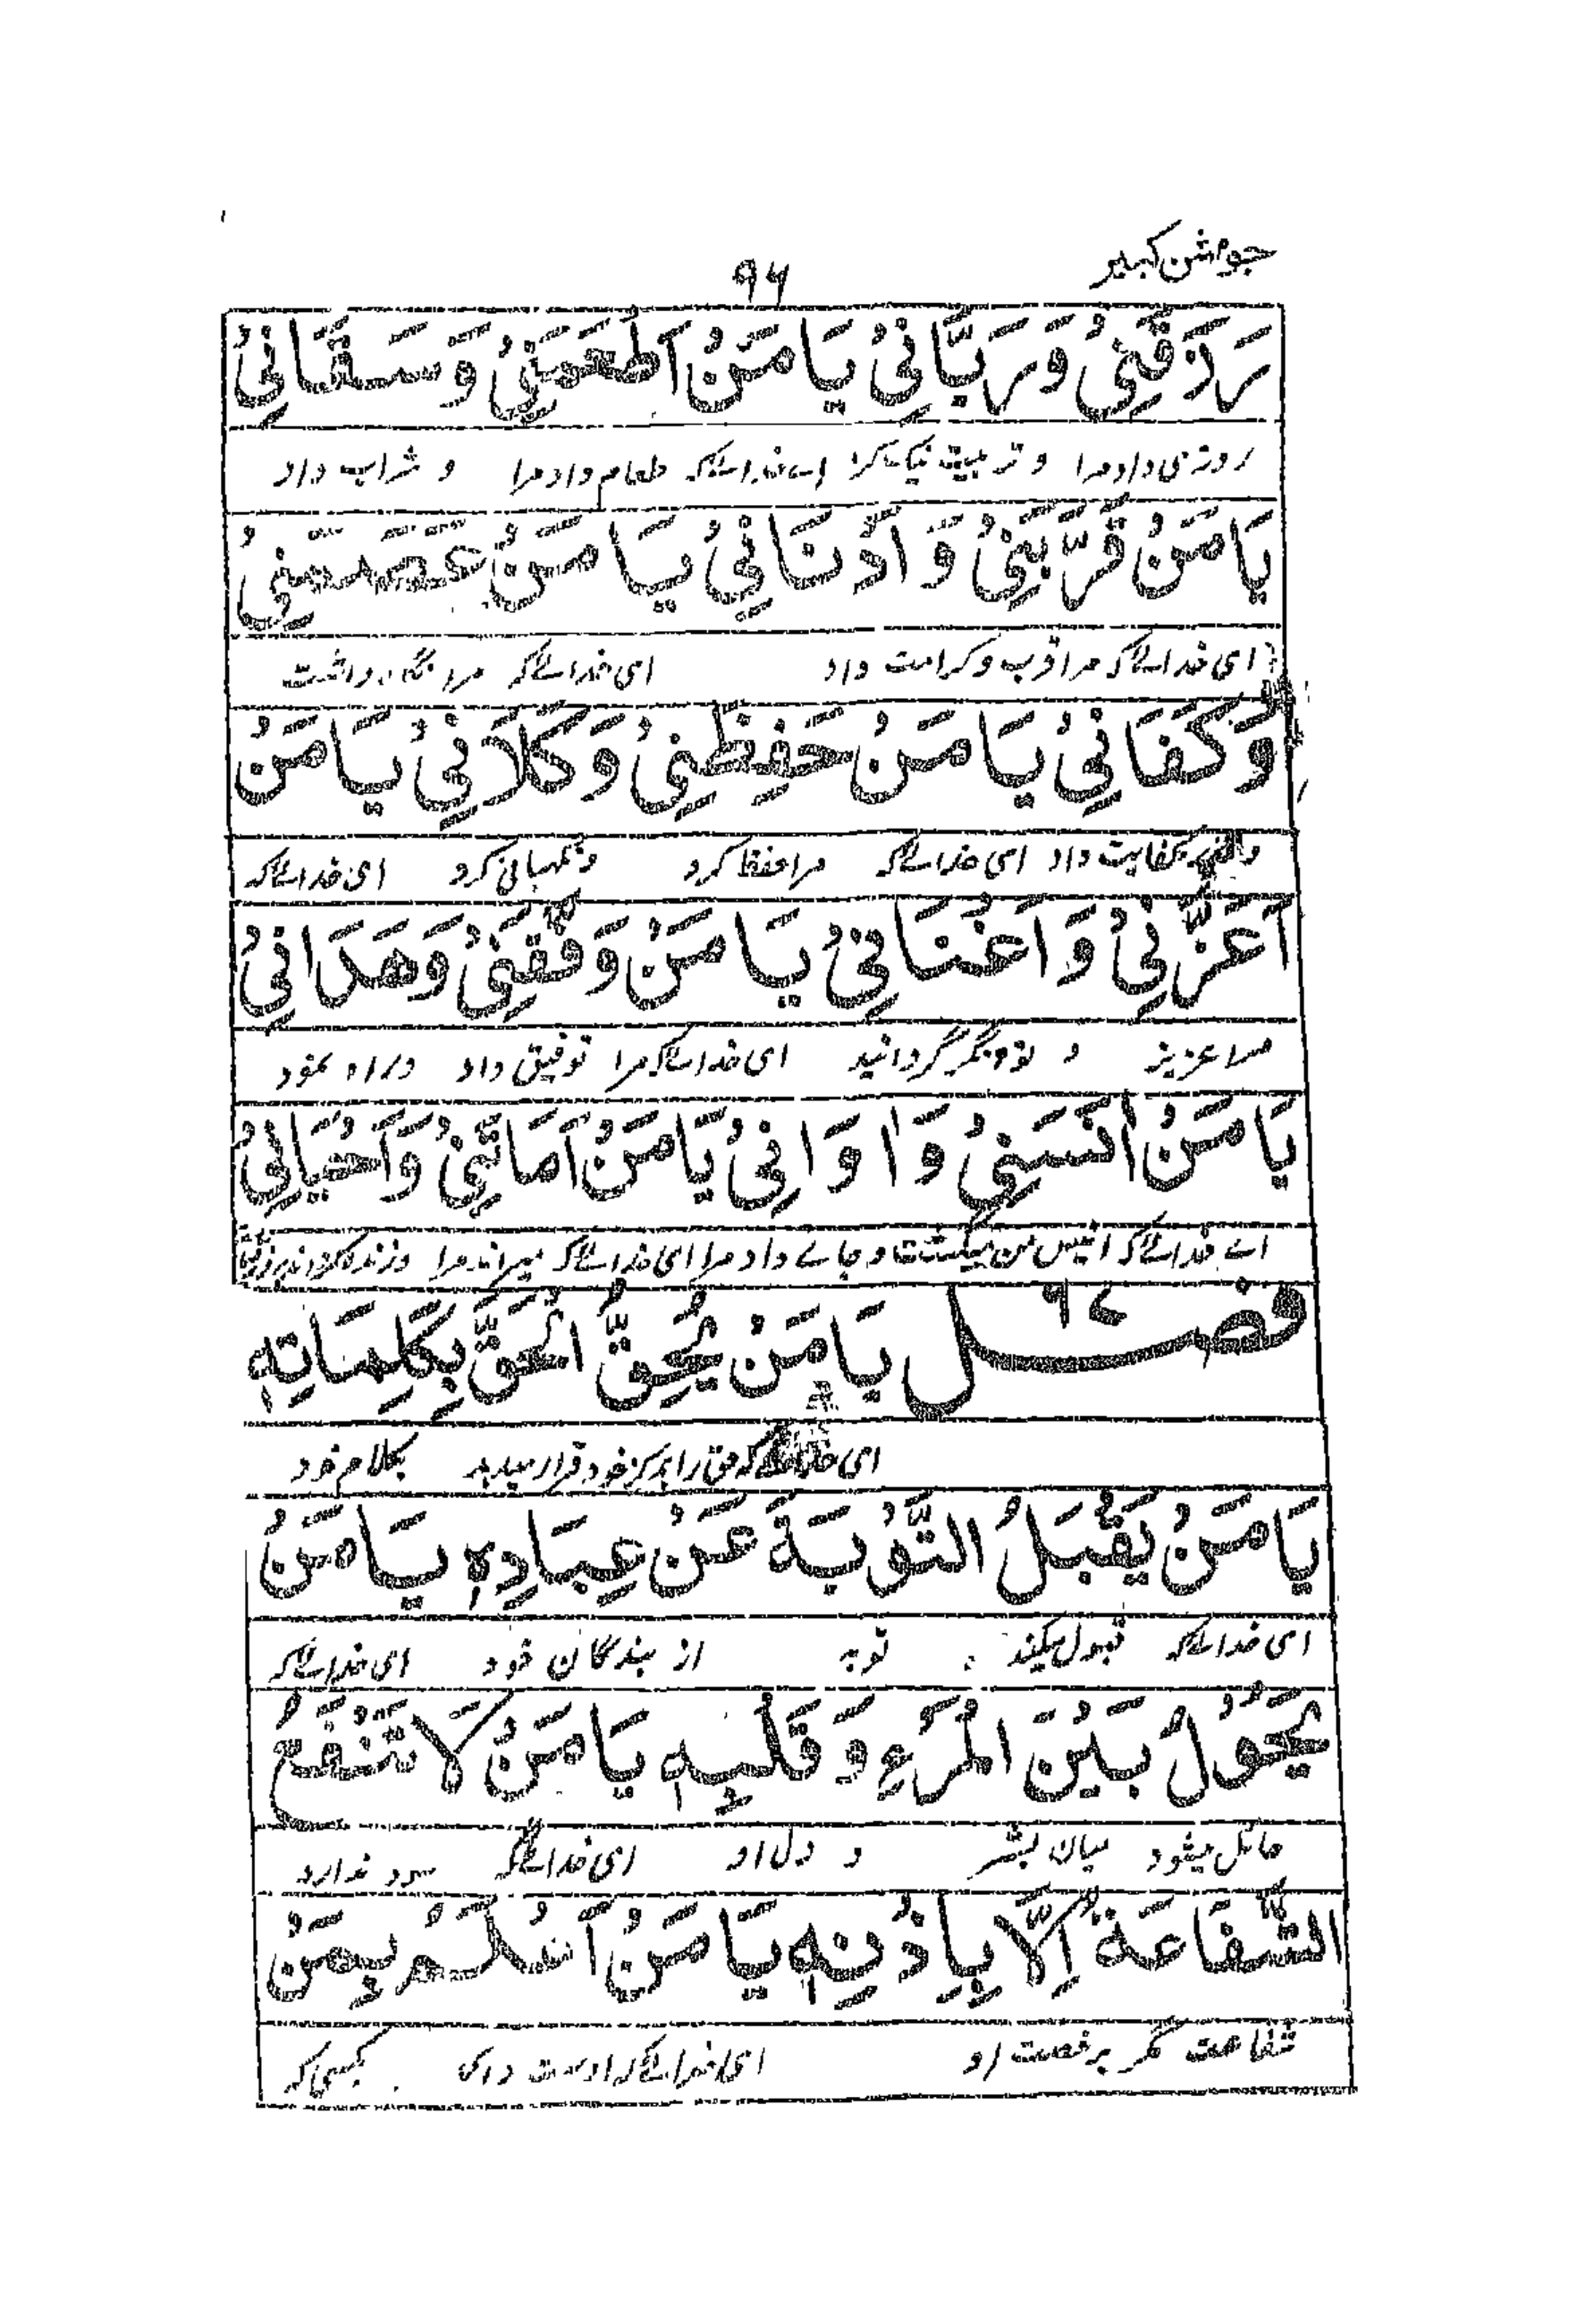 جوشن کبیر
۹۶
رَزَقَنِیْ وَرَبَّانِیْ یَا مَنْ اَطْعَمَنِیْ وَسَقَانِیْ
روزی داد مرا و تربیت نیک کرد اے خداے کہ طعام داد مرا و شراب داد
یَا مَنْ قَرَّبَنِیْ وَ اَدْنَانِیْ یَا مَنْ عَصَمَنِیْ
ای خداے کہ مرا قرب و کرامت داد ای خداے کہ مرا نگاہ داشت
وَكَفَانِیْ یَا مَنْ حَفِظَنِیْ وَكَلَانِیْ یَا مَنْ
کفایت داد ای خداے کہ مرا حفظ کرد و نگہبانی کرد ای خداے کہ
اَعَزَّنِیْ وَ اَغْنَانِیْ یَا مَنْ وَفَّقَنِیْ وَهَدَانِیْ
مرا عزیز و تونگر گردانید ای خداے کہ مرا توفیق داد و راہ نمود
یَا مَنْ اٰنَسَنِیْ وَ اٰوَانِیْ یَا مَنْ اَمَاتَنِیْ وَاَحْیَانِیْ
اے خداے کہ انیس من میگشت و جاے داد مرا ای خداے کہ میراند مرا و زندہ گرداند
فصل ۷۶ یَا مَنْ یُحِقُّ الْحَقَّ بِكَلِمَاتِهٖ
ای کہ حق را بمرکز خود قرار میدہد بکلام خود
یَا مَنْ یَقْبَلُ التَّوْبَةَ عَنْ عِبَادِهٖ یَا مَنْ
ای خداے کہ قبول میکند توبہ از بندگان خود ای خداے کہ
یَحُوْلُ بَیْنَ الْمَرْءِ وَ قَلْبِهٖ یَا مَنْ لَا تَنْفَعُ
حائل میشود میان بشر و دل او ای خداے کہ سود ندارد
الشَّفَاعَةُ اِلَّا بِاِذْنِهٖ یَا مَنْ اَعْلَمُ بِمَنْ
شفاعت مگر برخصت او ای خداے کہ او بکسی کہ